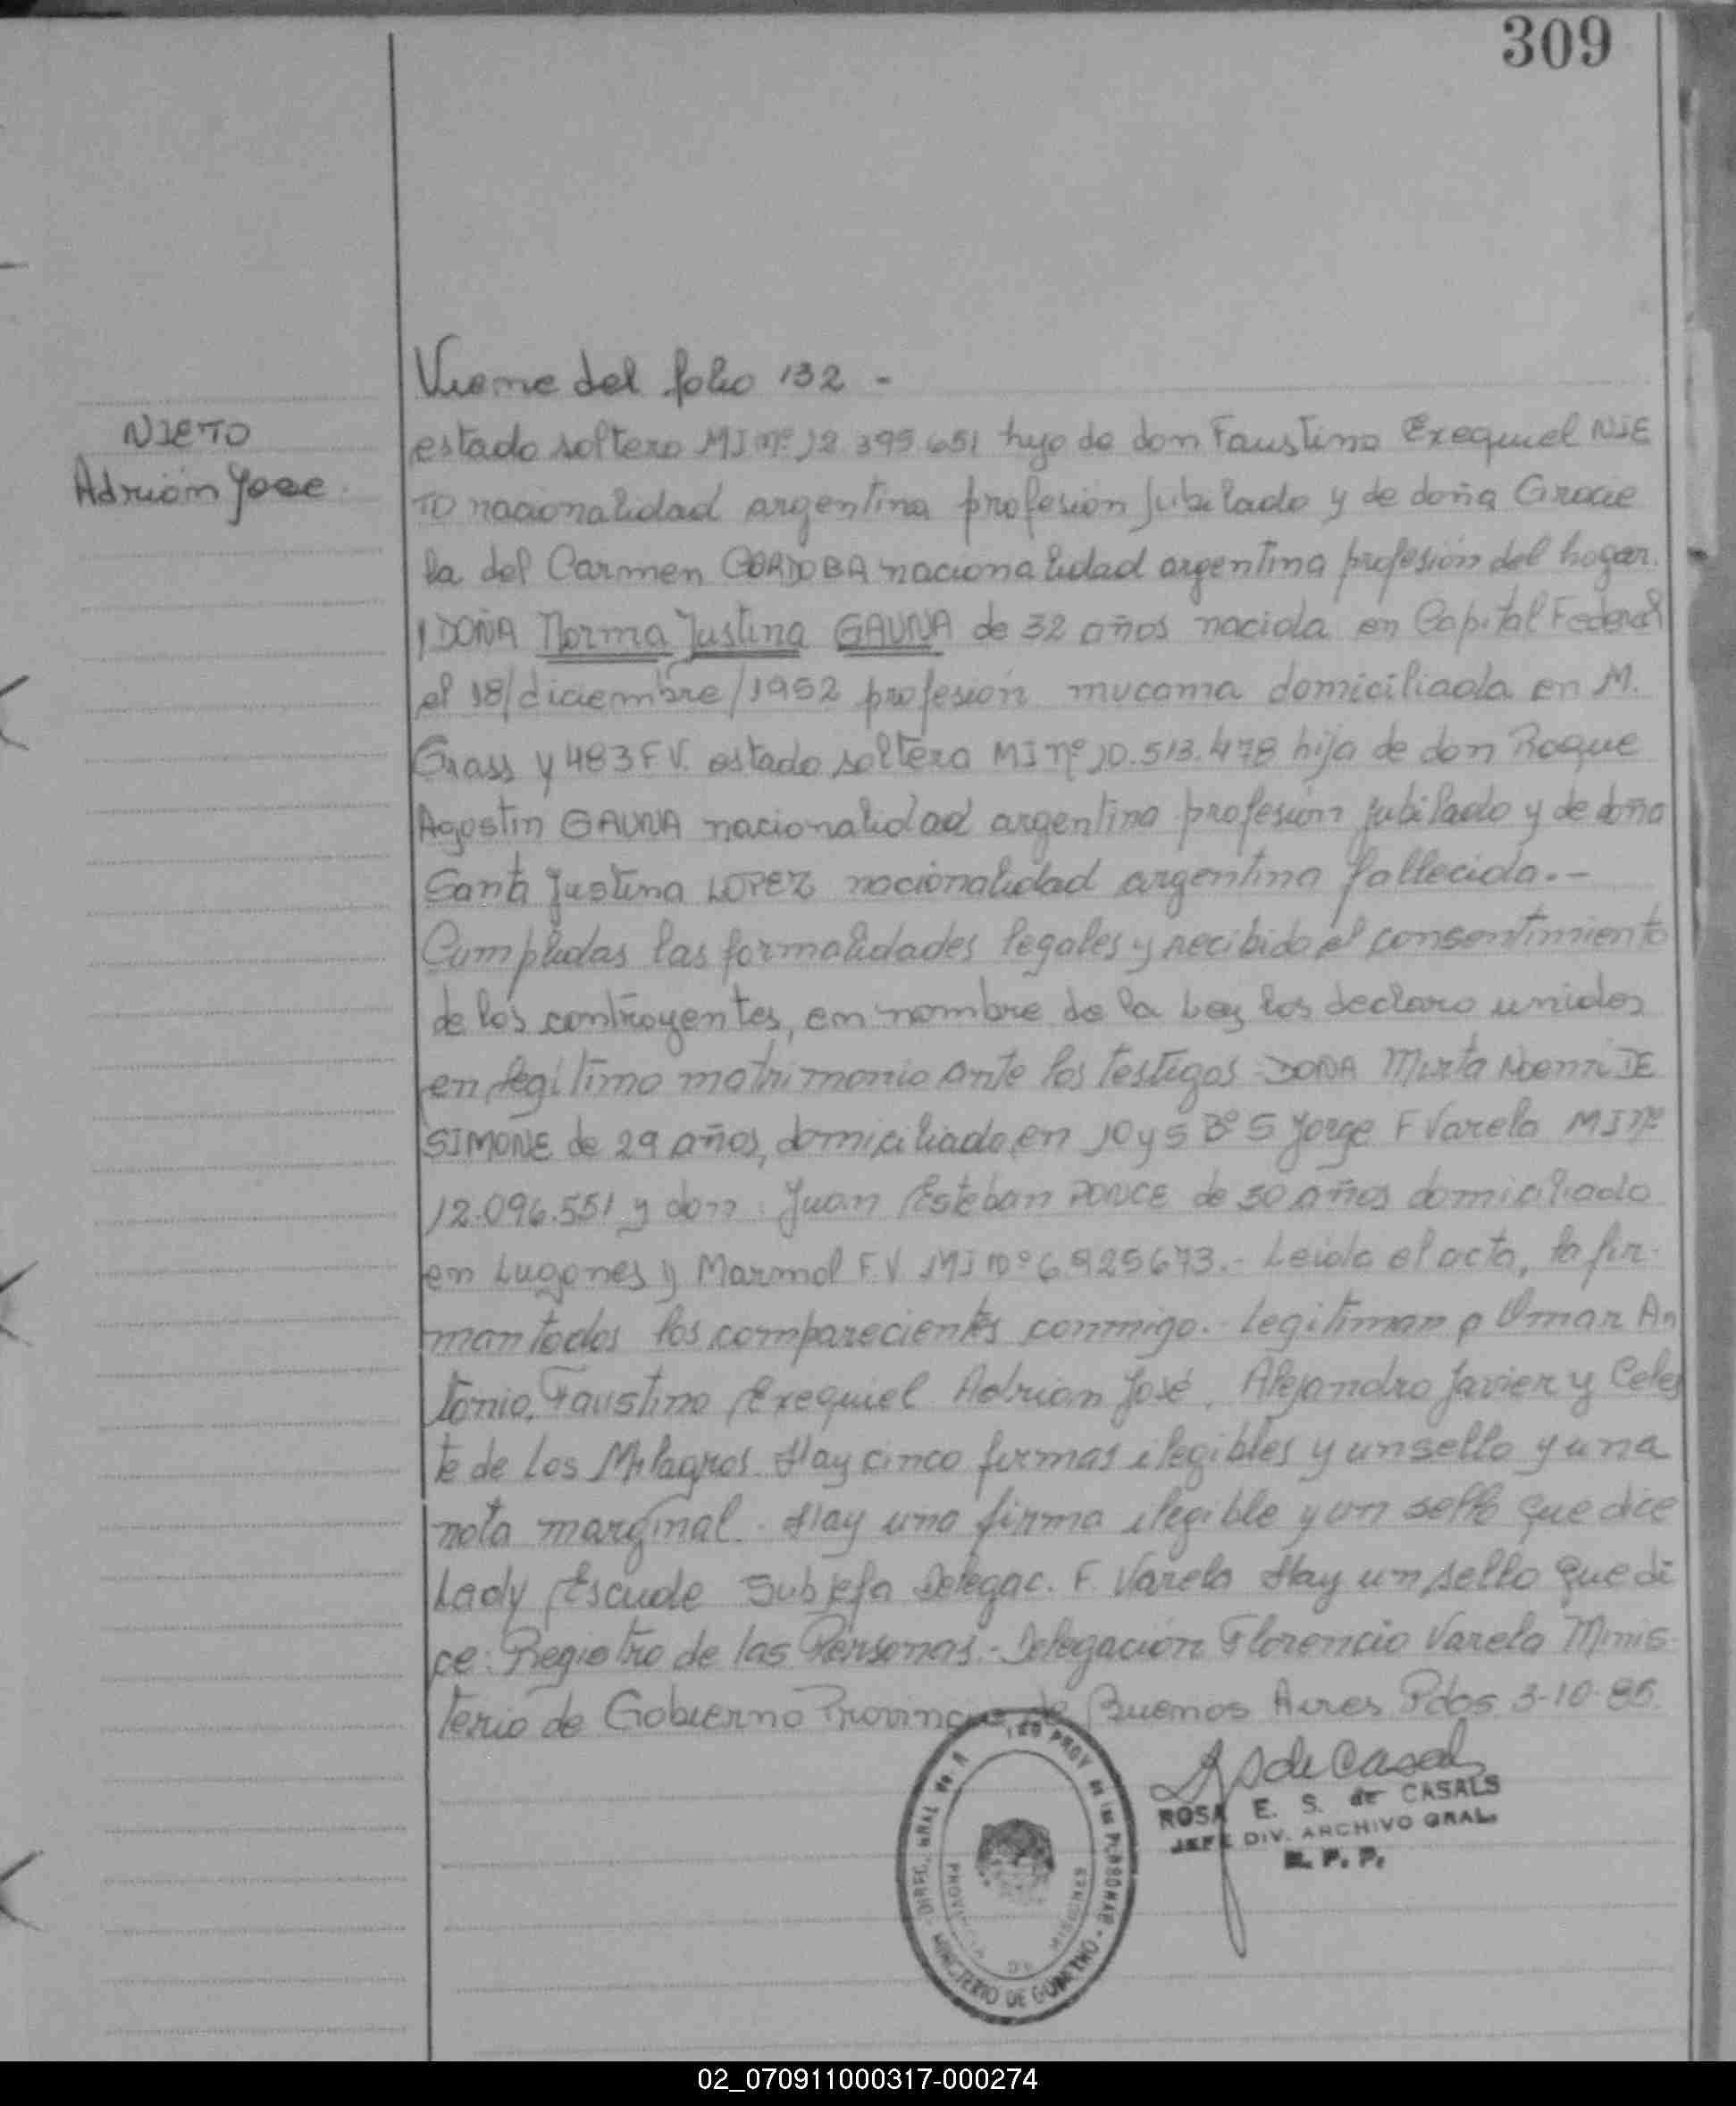 309
Viene del folio 132 -
NIETO
Adrián Jose.
estado soltero MI nº 12.395.651 hijo de don Faustino Exequiel NIE
TO nacionalidad argentina profesión Jubilado y de doña Gracie
la del Carmen CORDOBA nacionalidad argentina profesión del hogar.
y DOÑA Norma Justina GAUNA de 32 años nacida en Capital Federal
el 18/diciembre/1952 profesión mucama domiciliada en M.
Grass y 483 F.V. estado soltera MI nº 10.513.478 hija de don Roque
Agostin GAUNA nacionalidad argentina profesión jubilado y de doña
Santa Justina LOPEZ nacionalidad argentina fallecida.-
Cumplidas las formalidades legales y recibido el consentimiento
de los contrayentes, en nombre de la Ley los declaro unidos
en legítimo matrimonio ante los testigos DOÑA Mirta Noemi DE
SIMONE de 29 años, domiciliado en 10 y 5 Bº S Jorge F Varela MI nº
12.096.551 y don: Juan Esteban PONCE de 50 años domiciliado
en Lugones y Marmol F.V MI nº 6.925673.- Leida el acta, la fir-
man todos los comparecientes conmigo.- Legitiman a Omar An
tonio, Faustino Exequiel Adrian José, Alejandro Javier y Celes
te de los Milagros. Hay cinco firmas ilegibles y un sello y una
nota marginal. Hay una firma ilegible y un sello que dice
Lady Escude Subjefa Delegac. F. Varela Hay un sello que di
ce: Registro de las Personas.- Delegación Florencio Varela Minis
terio de Gobierno Provincia de Buenos Aires Pdas 3-10-85.
ROSA E. S. de CASALS
JEFE DIV. ARCHIVO GRAL.
R. P. P.
PROV de las PERSONAS - MINISTERIO DE GOBIERNO - DIREC. GRAL
PROVINCIA DE MISIONES
02_070911000317-000274